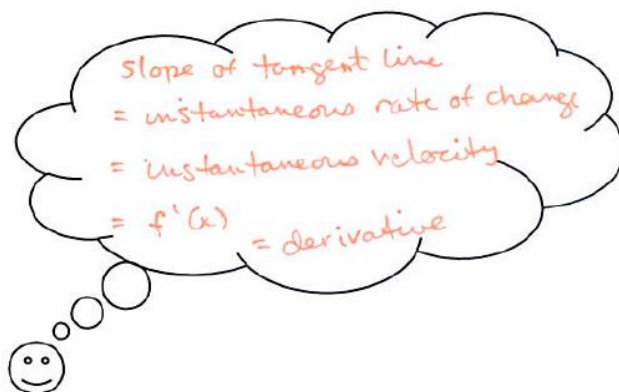 slope of tangent line
= instantaneous rate of change
= instantaneous velocity
= f'(x) = derivative